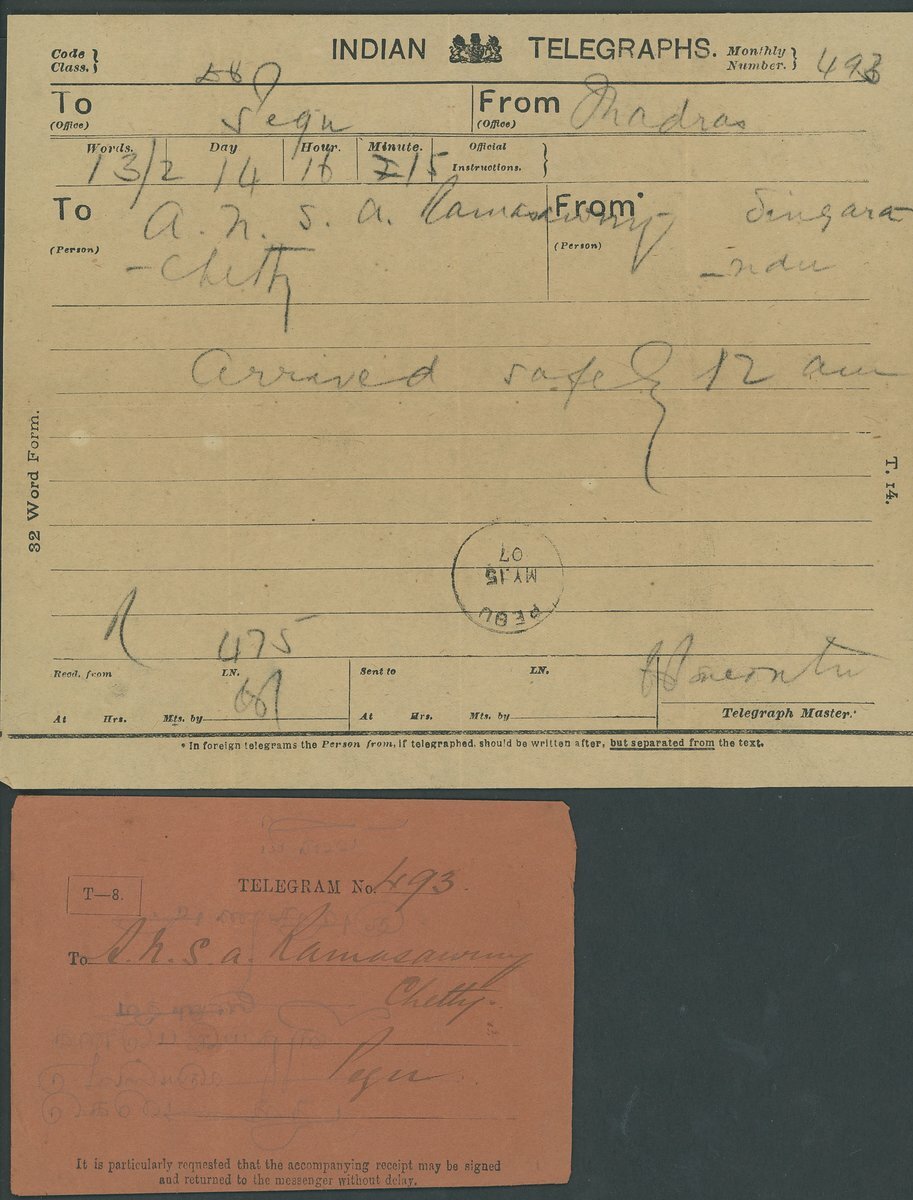 Code Class. }
INDIAN TELEGRAPHS.
Monthly Number. } 493
To (Office) Pegu
From (Office) Madras
Words. Day Hour. Minute. Official Instructions. }
13/2 14 16 15
To (Person) A. N. S. A. Ramasawmy
- Chetty
From* (Person) Singara
- ndu
Arrived safely 12 am
32 Word Form.
T. 14.
PEGU
MY.15
07
475
Recd. from LN. Sent to LN.
At Hrs. Mts. by At Hrs. Mts. by Telegraph Master.
* In foreign telegrams the Person from, if telegraphed, should be written after, but separated from the text.
T—8.
TELEGRAM No. 493.
To A. N. S. A. Ramasawmy
Chetty.
Pegu
It is particularly requested that the accompanying receipt may be signed
and returned to the messenger without delay.